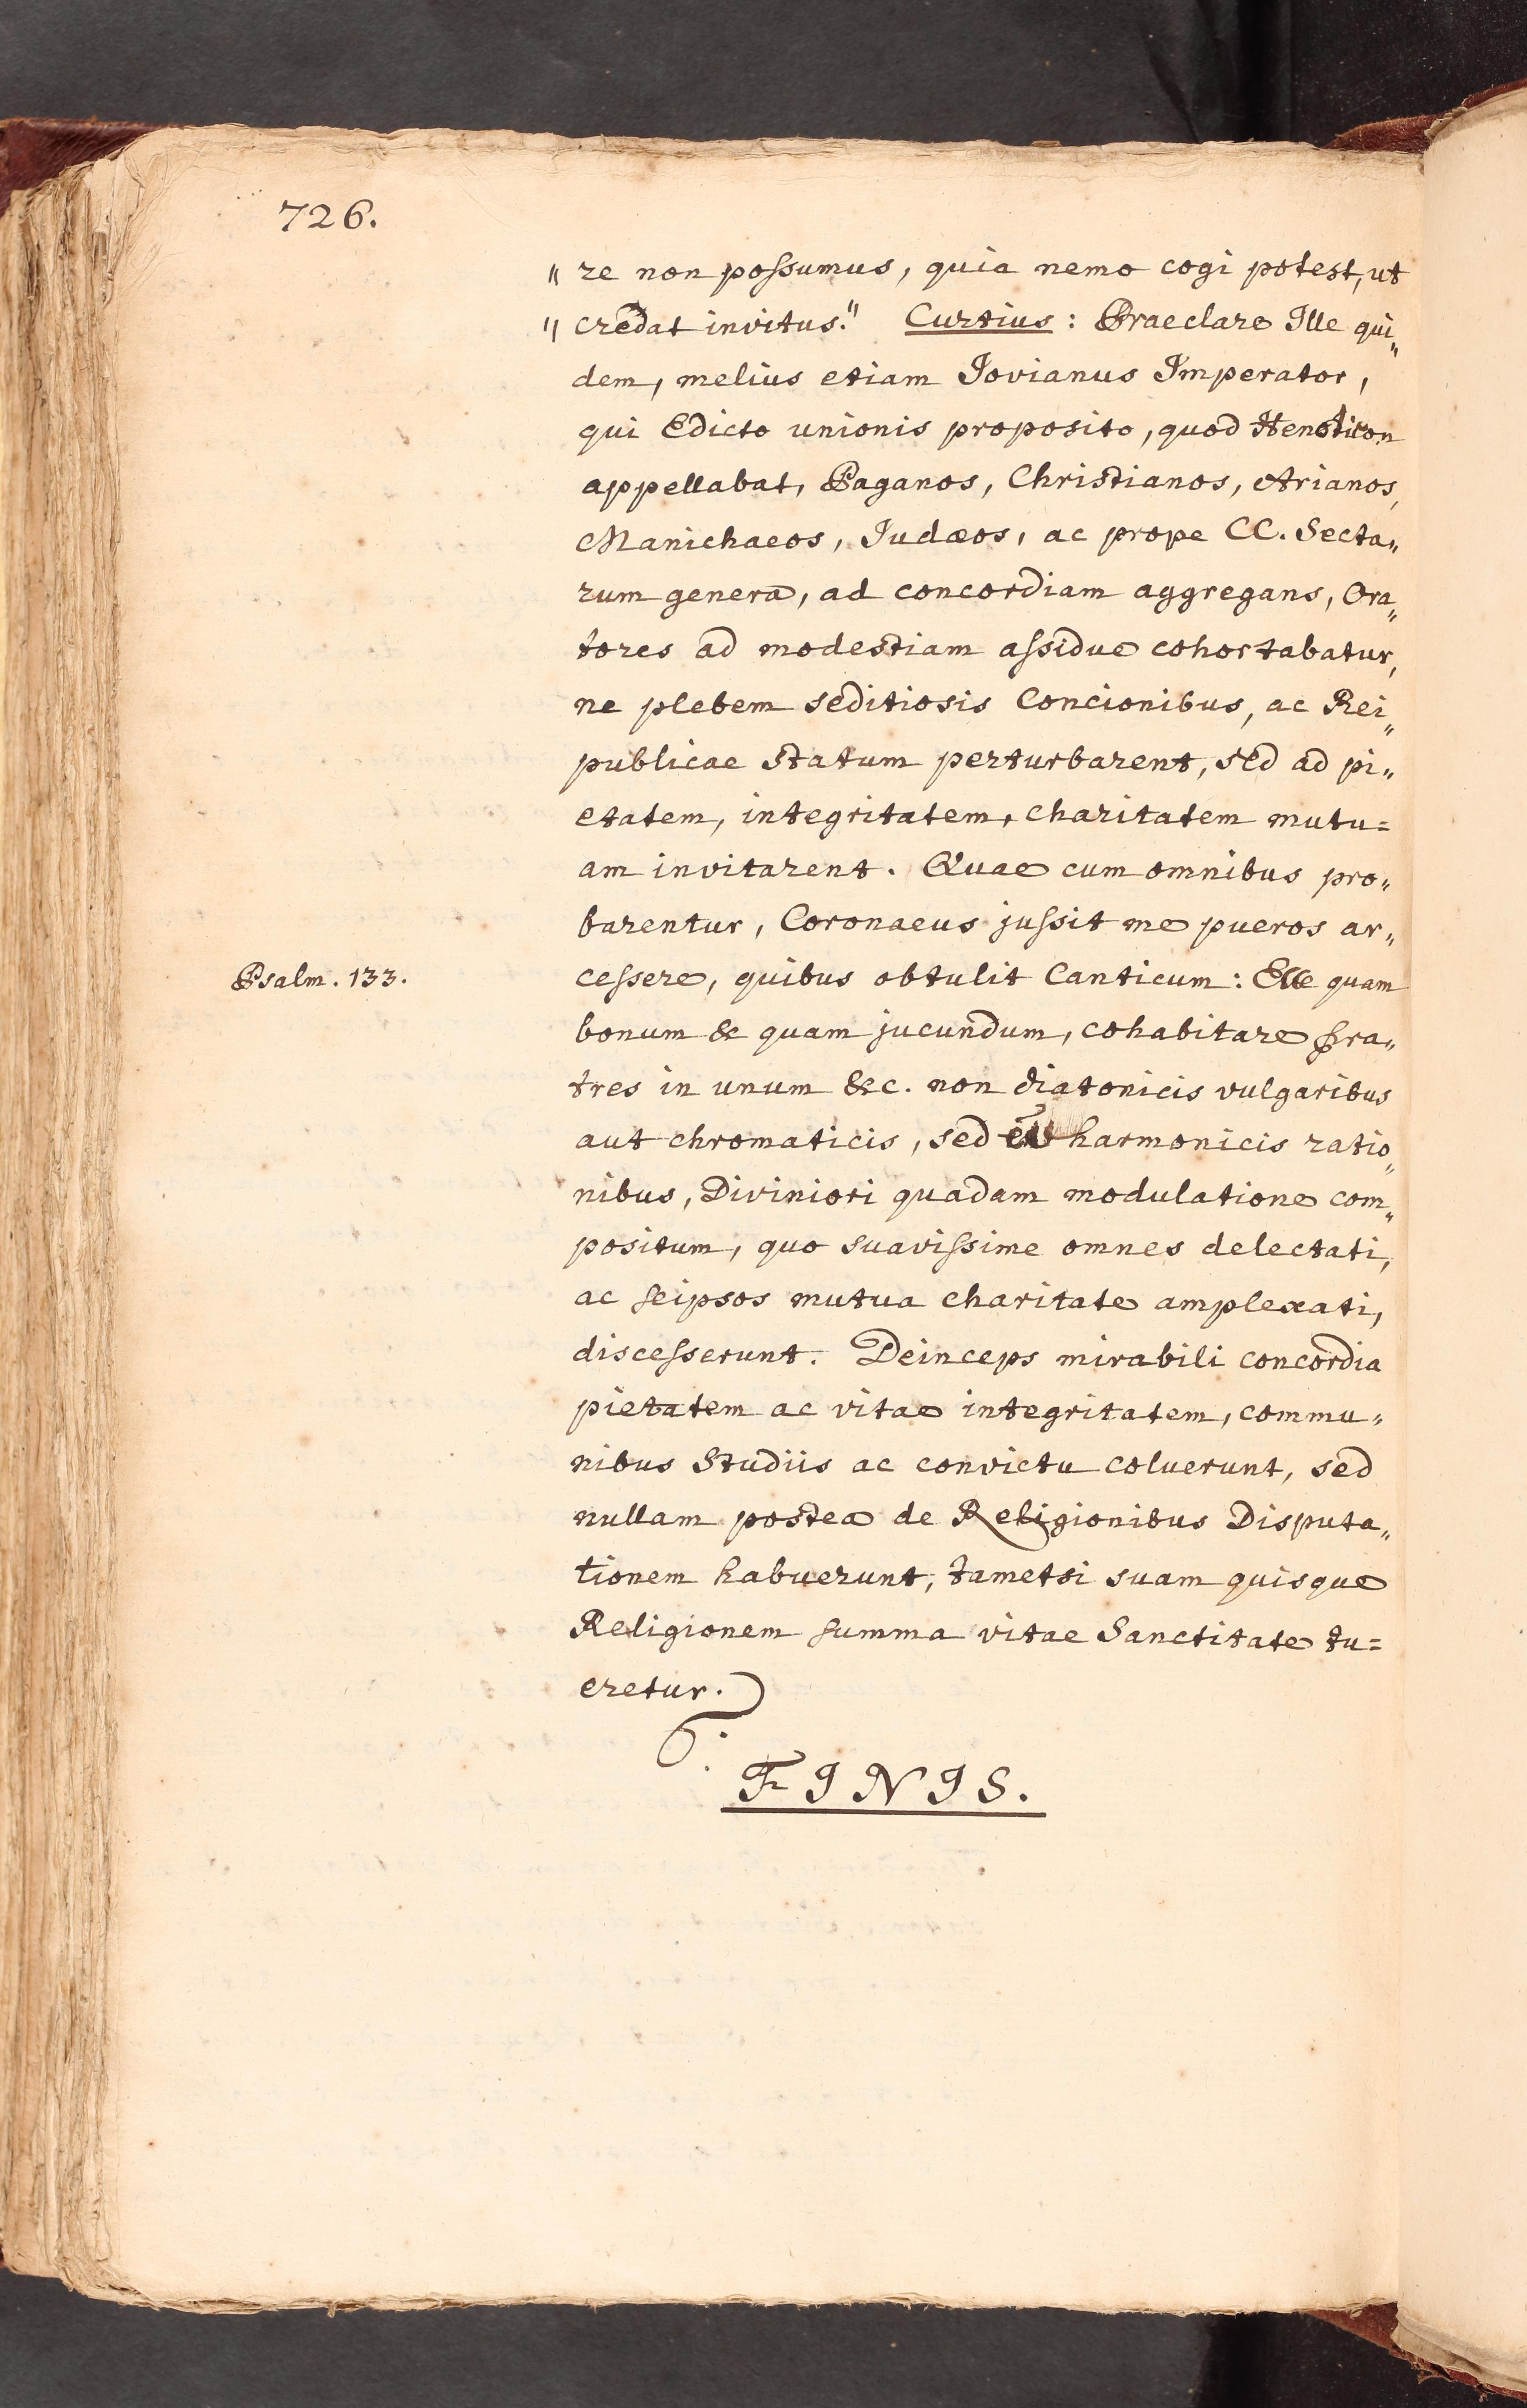 726.
„ re non poſsumus, quia nemo cogi potest, ut
„ credat invitus." Curtius: Praeclare Ille qui„
dem, melius etiam Jovianus Imperator,
qui Edicto unionis proposito, quod Henoticon
appellabat, Paganos, Christianos, Arianos,
Manichaeos, Judæos, ac prope CC. Secta„
rum genera, ad concordiam aggregans, Ora„
tores ad modestiam aſsidue cohortabatur,
ne plebem seditiosis Concionibus, ac Rei„
publicae statum perturbarent, sed ad pi„
etatem, integritatem, charitatem mutu=
am invitarent. Quae cum omnibus pro„
barentur, Coronaeus juſsit me pueros ar„
Psalm. 133.
ceſsere, quibus obtulit Canticum: Elle quam
bonum & quam jucundum, cohabitare fra„
tres in unum &c. non diatonicis vulgaribus
aut chromaticis, sed harmonicis ratio„
nibus, Diviniori quadam modulatione com„
positum, quo suaviſsime omnes delectati,
ac ſeipsos mutua charitate amplexati,
disceſserunt. Deinceps mirabili concordia
pietatem ac vitae integritatem, commu„
nibus Studiis ac convictu coluerunt, sed
nullam postea de Religionibus Disputa„
tionem habuerunt, tametsi suam quisque
Religionem ſumma vitae Sanctitate tu=
eretur.
FINIS.